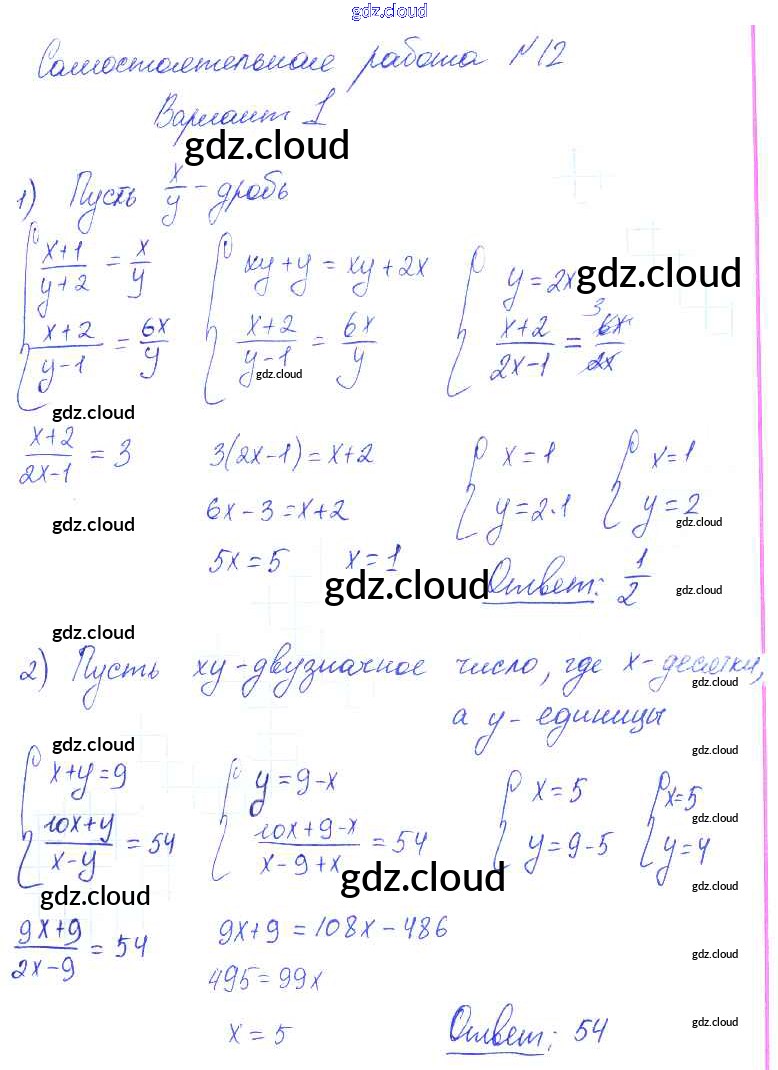 gdz.cloud
Самостоятельная работа №12
Вариант 1
gdz.cloud
1) Пусть x/y - дробь
{ (x+1)/(y+2) = x/y { xy+y = xy+2x { y=2x gdz.cloud
(x+2)/(y-1) = 6x/y (x+2)/(y-1) = 6x/y (x+2)/(2x-1) = 6x/2x 3
gdz.cloud
gdz.cloud
(x+2)/(2x-1) = 3 3(2x-1) = x+2 { x=1 { x=1
6x-3 = x+2 y=2·1 y=2
gdz.cloud gdz.cloud
5x=5 x=1
gdz.cloud Ответ: 1/2 gdz.cloud
gdz.cloud
2) Пусть xy - двузначное число, где x - десятки,
gdz.cloud
а y - единицы
gdz.cloud gdz.cloud
{ x+y=9 { y=9-x { x=5 { x=5
gdz.cloud
(10x+y)/(x-y) = 54 (10x+9-x)/(x-9+x) = 54 y=9-5 y=4
gdz.cloud gdz.cloud gdz.cloud
(9x+9)/(2x-9) = 54 9x+9 = 108x-486
gdz.cloud
495=99x
x=5 Ответ: 54
gdz.cloud